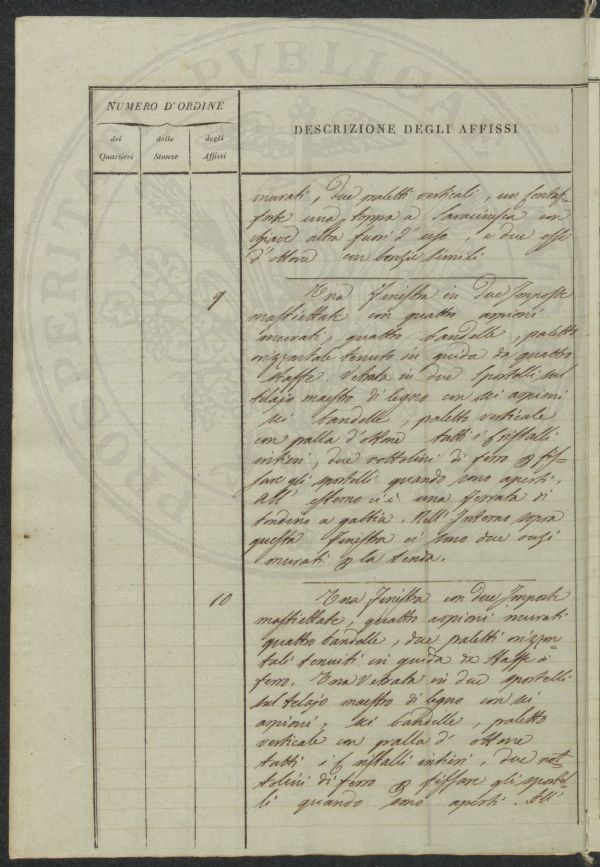 NUMERO D'ORDINE
DESCRIZIONE DEGLI AFFISSI
dei Quartieri
delle Stanze
degli Affissi
murati, due paletti verticali, un contaf-
forte una toppa a Saracinesca con
chiave altra fuori d'uso, e due esse
d'ottone con borchie simili
9
Una Finestra in due Imposte
mastiettate con quattro arpioni
murati, quattro bandelle, paletto
orizzontale tenuto in guida da quattro
staffe. Vetrata in due Sportelli sul
telajo maestro di legno con sei arpioni
sei bandelle, paletto verticale
con palla d'ottone tutti i Cristalli
intieri, due nottolini di ferro p fis-
sare gli sportelli quando sono aperti.
All' esterno ci è una ferrata di
tondino a gabbia. Nell' Interno sopra
questa Finestra ci sono due
murati p la tenda.
10
Una Finestra con due Imposte
mastiettate, quattro arpioni murati
quattro bandelle, due paletti orizzon
tali tenuti in guida da staffe di
ferro. Una Vetrata in due sportelli
sul telajo maestro di legno con sei
arpioni, sei bandelle, paletto
verticale con palla d' ottone
tutti i Cristalli intieri, due not-
tolini di ferro p fissare gli sportel-
li quando sono aperti. All'